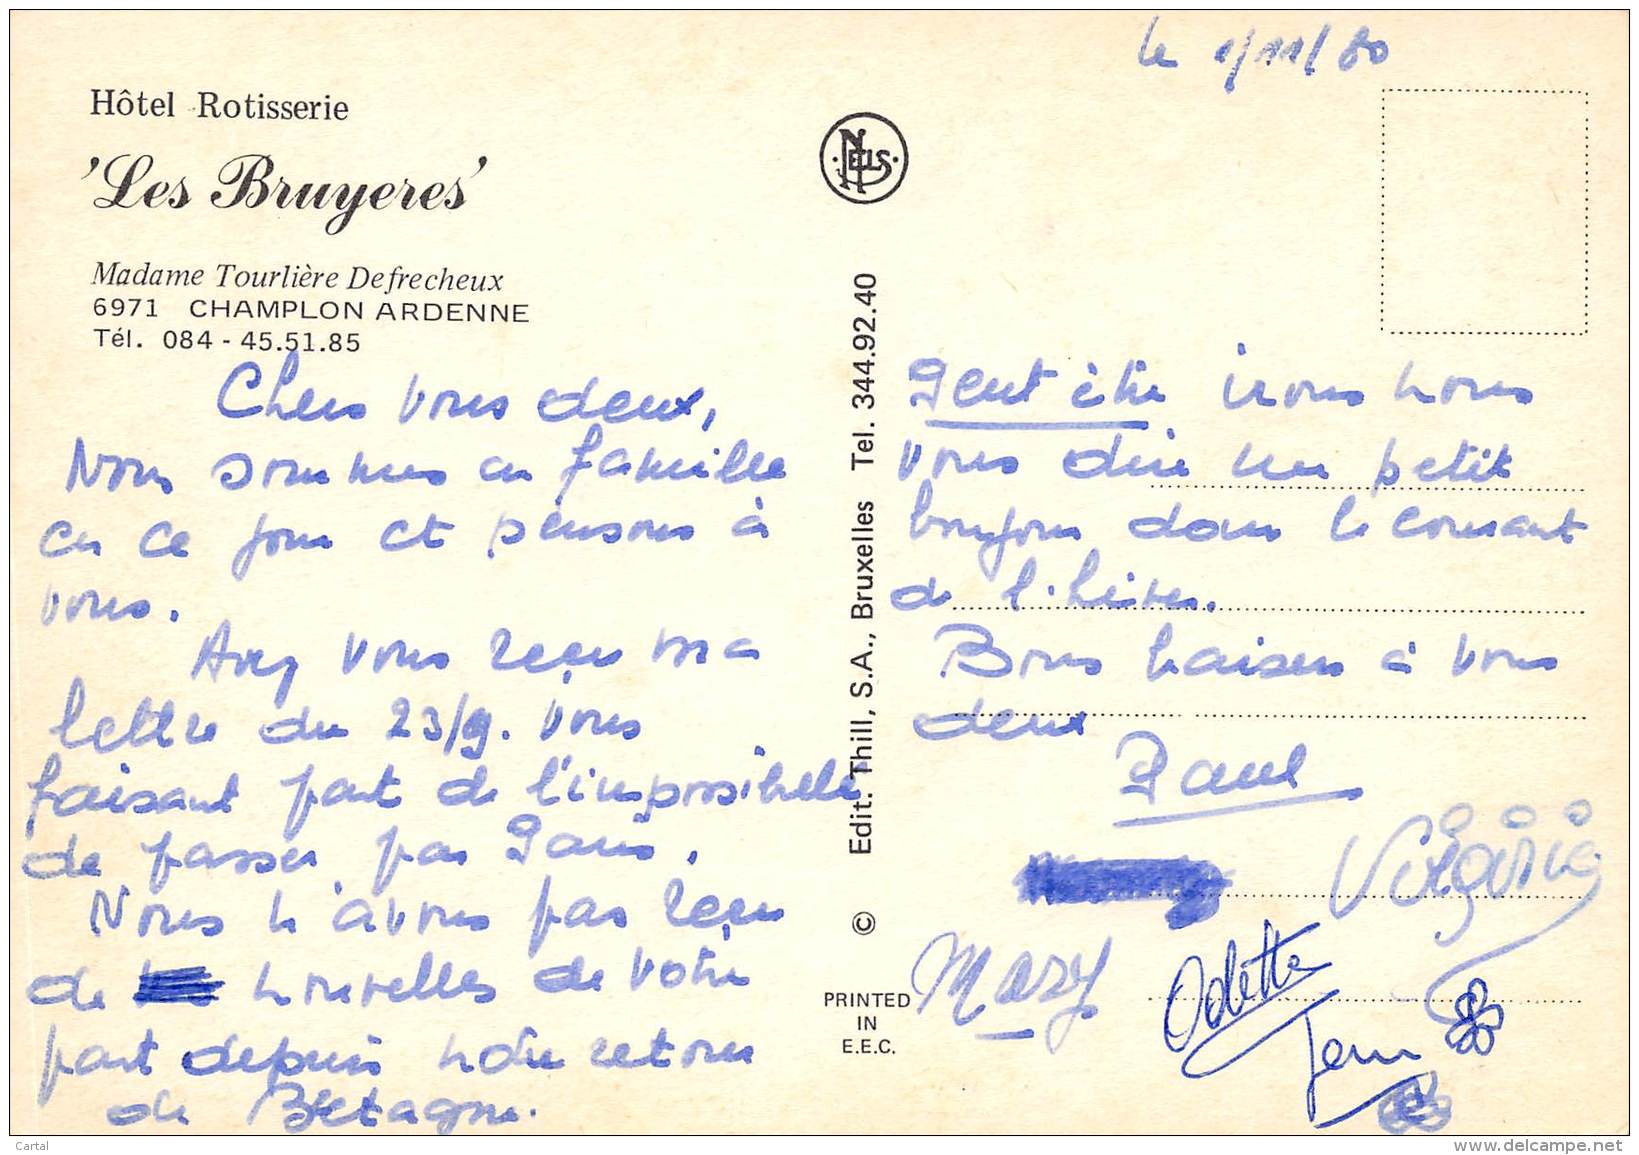 le 1/11/80
Hôtel Rotisserie
'Les Bruyeres'
Madame Tourlière Defrecheux
6971 CHAMPLON ARDENNE
Tél. 084 - 45.51.85
Chers vous deux,
Nous sommes en famille
en ce jour et pensons à
vous.
Avez vous reçu ma
lettre du 23/9. Vous
faisant part de l'impossibilité
de passer par Paris.
Nous n'avons pas reçu
de nouvelles de votre
part depuis notre retour
de Bretagne.
NELS
Edit. Thill, S.A., Bruxelles Tel. 344.92.40
©
PRINTED
IN
E.E.C.
Peut être irons nous
vous dire un petit
bonjour dans le courant
de l'hiver.
Bons baisers à vous
deux
Paul
Virginia
Mary
Odette
Jean
Cartal
www.delcampe.net